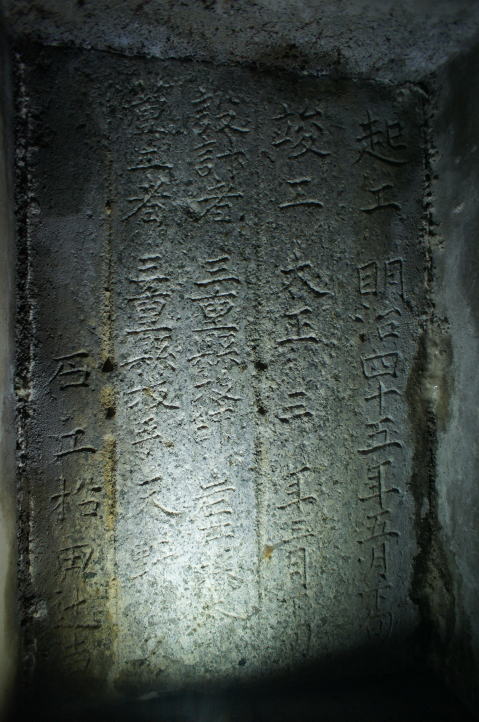 起工 明治四十五年五月下旬
竣工 大正三年三月下旬
設計者 三重縣技師
董工者 三重縣技手 天野
石工